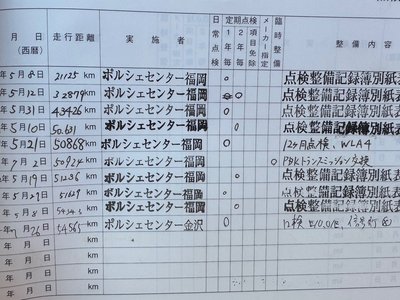 月 日 (西暦) 走行距離 実施者 日常点検 定期点検 1年毎 2年毎 項目免除 メーカー指定 臨時整備 整備内容
年 5月 8日 21125 km ポルシェセンター福岡 点検整備記録簿別紙表
年 5月12日 32879 km ポルシェセンター福岡 点検整備記録簿別紙表
年 5月31日 43426 km ポルシェセンター福岡 点検整備記録簿別紙表
年 5月10日 50,631 km ポルシェセンター福岡 点検整備記録簿別紙表
年 5月21日 50868 km ポルシェセンター福岡 12ヶ月点検、WLA4
年 7月 2日 50924 km ポルシェセンター福岡 PDKトランスミッション交換
年 5月19日 51256 km ポルシェセンター福岡 点検整備記録簿別紙表
年 5月29日 km ポルシェセンター福岡 点検整備記録簿別紙表
年 5月 8日 km ポルシェセンター福岡 点検整備記録簿別紙表
年 7月26日 54565 km ポルシェセンター金沢 12検
年 月 日 km
年 月 日 km
年 月 日